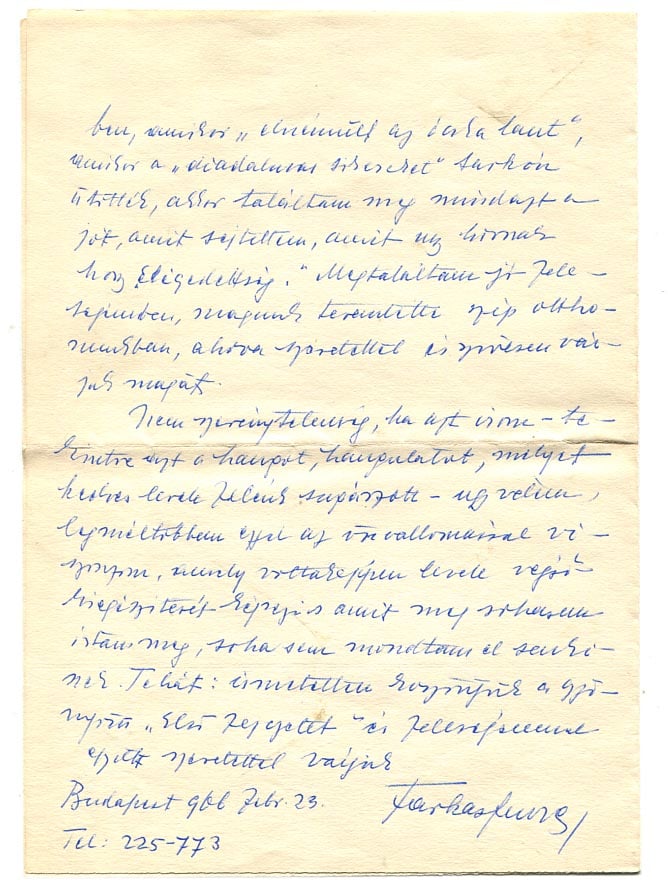 ben, amikor „elnémúlt az óóda lant",
amikor a „diadalmas sikereket" sarkon
ütötték, akkor találtam meg mindazt a
jót, amit sejtettem, amit úgy hívnak
hogy Elégedettség." Megtaláltam jó fele-
ségemben, magunk teremtette szép ottho-
nunkban, ahova szeretettel és szívesen vár-
juk magát.
Nem szerénytelenség, ha azt írom - te-
kintve azt a hangot, hangulatot, melyet
kedves levele felénk sugárzott - úgy vélem,
legméltóbban ezzel az önvallomással vi-
szonzom, amely voltaképpen levele végső
kiegészítését képezi s amit még sohasem
írtam meg, soha sem mondtam el senki-
nek. Tehát: ismételten köszönjük a gyö-
nyörű „Első Fejezetet" és feleségemmel
együtt szeretettel várjuk
Budapest 966 Febr. 23.
Farkas
Tel: 225-773